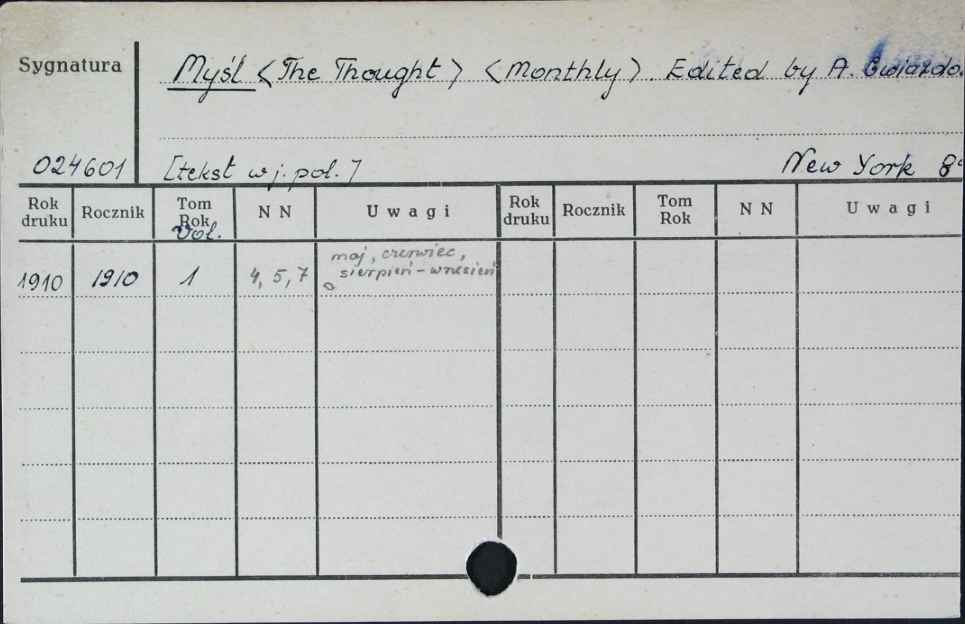 Sygnatura
Myśl <The Thought> <Monthly>. Edited by A. Gwiazdo.
024601 [tekst w j. pol.] New York 8°
Rok druku Rocznik Tom Rok Vol. N N Uwagi Rok druku Rocznik Tom Rok N N Uwagi
maj, czerwiec,
1910 1910 1 4, 5, 7 sierpień - wrzesień